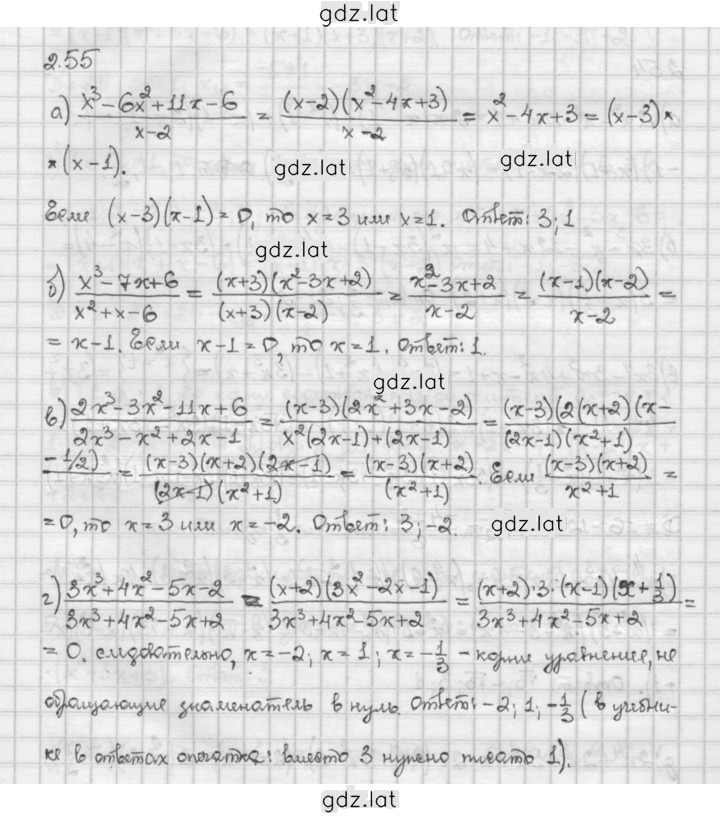 gdz.lat
2.55
а) (x³-6x²+11x-6)/(x-2) = ((x-2)(x²-4x+3))/(x-2) = x²-4x+3 = (x-3)*
*(x-1).
gdz.lat gdz.lat
Если (x-3)(x-1)=0, то x=3 или x=1. Ответ: 3; 1
gdz.lat
б) (x³-7x+6)/(x²+x-6) = ((x+3)(x²-3x+2))/((x+3)(x-2)) = (x²-3x+2)/(x-2) = ((x-1)(x-2))/(x-2) =
= x-1. Если x-1=0, то x=1. Ответ: 1.
gdz.lat
в) (2x³-3x²-11x+6)/(2x³-x²+2x-1) = ((x-3)(2x²+3x-2))/(x²(2x-1)+(2x-1)) = ((x-3)(2(x+2)(x-
-1/2))/((2x-1)(x²+1)) = ((x-3)(x+2)(2x-1))/((2x-1)(x²+1)) = ((x-3)(x+2))/(x²+1). Если ((x-3)(x+2))/(x²+1) =
=0, то x=3 или x=-2. Ответ: 3; -2
gdz.lat
г) (3x³+4x²-5x-2)/(3x³+4x²-5x+2) = ((x+2)(3x²-2x-1))/(3x³+4x²-5x+2) = ((x+2)·3·(x-1)(x+1/3))/(3x³+4x²-5x+2) =
=0. следовательно, x=-2; x=1; x=-1/3 - корни уравнение, не
обращающие знаменатель в нуль. Ответ: -2; 1; -1/3 (в учебни-
ке в ответах опечатка: вместо 3 нужно писать 1).
gdz.lat